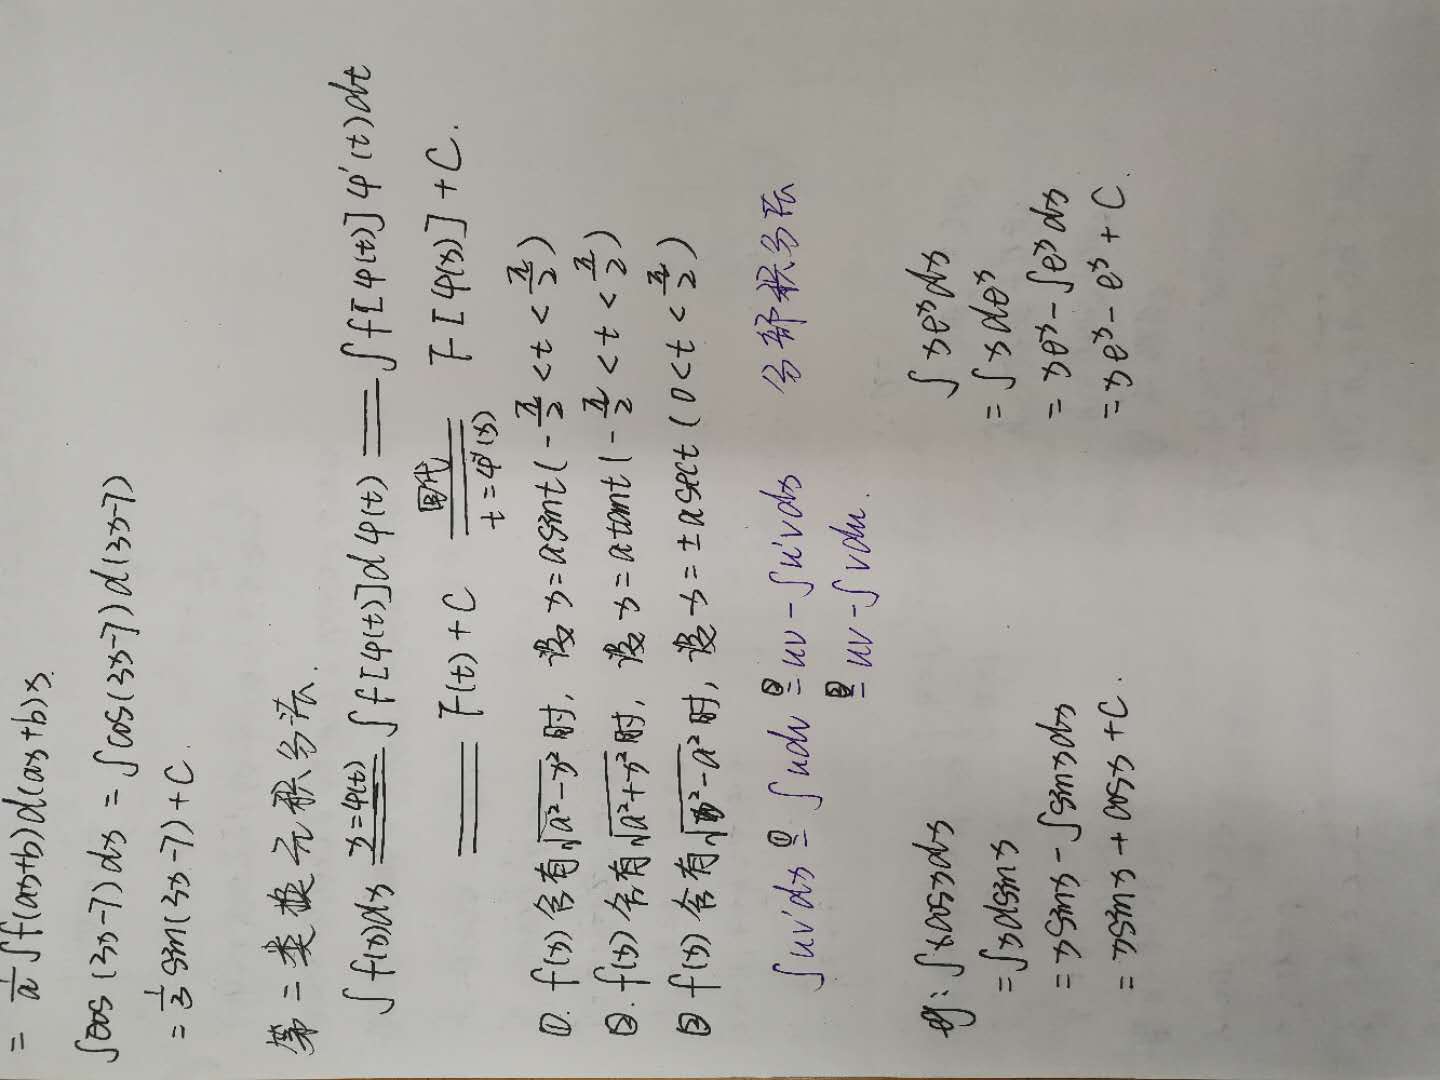 = 1/a ∫f(ax+b)d(ax+b)x.
∫cos(3x-7)dx = ∫cos(3x-7)d(3x-7)
= 1/3 sin(3x-7)+C
第二类换元积分法.
∫f(x)dx x=φ(t) ∫f[φ(t)]dφ(t) = ∫f[φ(t)]φ'(t)dt
= F(t)+C 回代 t=φ(x) F[φ(x)]+C.
①. f(x)含有√a²-x²时, 设x=asint(-π/2<t<π/2)
②. f(x)含有√a²+x²时, 设x=atant(-π/2<t<π/2)
③ f(x)含有√x²-a²时, 设x=±asect(0<t<π/2)
∫uv'dx ①= ∫udv ②= uv-∫u'vdx 分部积分法
③= uv-∫vdu.
eg: ∫xcosxdx ∫xeˣdx
=∫xdsinx =∫xdeˣ
=xsinx-∫sinxdx =xeˣ-∫eˣdx
=xsinx+cosx+C. =xeˣ-eˣ+C.